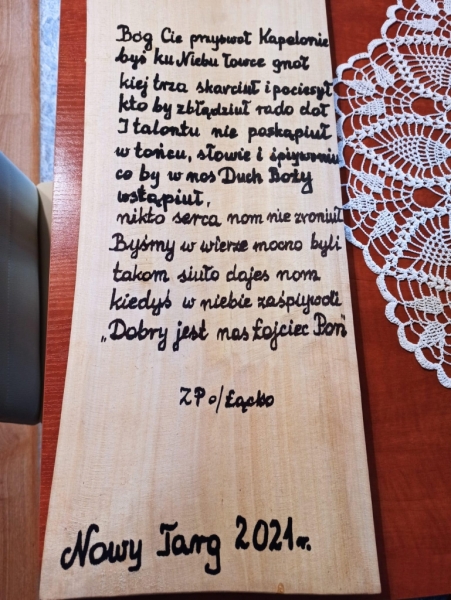 Bóg Cie przysłoł Kapelonie
byś ku Niebu łowce gnoł
kiej trza skarciuł i pociesył
kto by zbłądziuł rado doł
I talontu nie poskąpiuł
w tońcu, słowie i śpiywaniu
co by w nos Duch Boży
wstąpiuł,
nikto serca nom nie zroniuł
Byśmy w wierze mocno byli
takom siuło dajes nom
kiedyś w niebie zaśpiywomy
„Dobry jest nas Łojciec Pon"
ZP o/Łącko
Nowy Targ 2021 r.